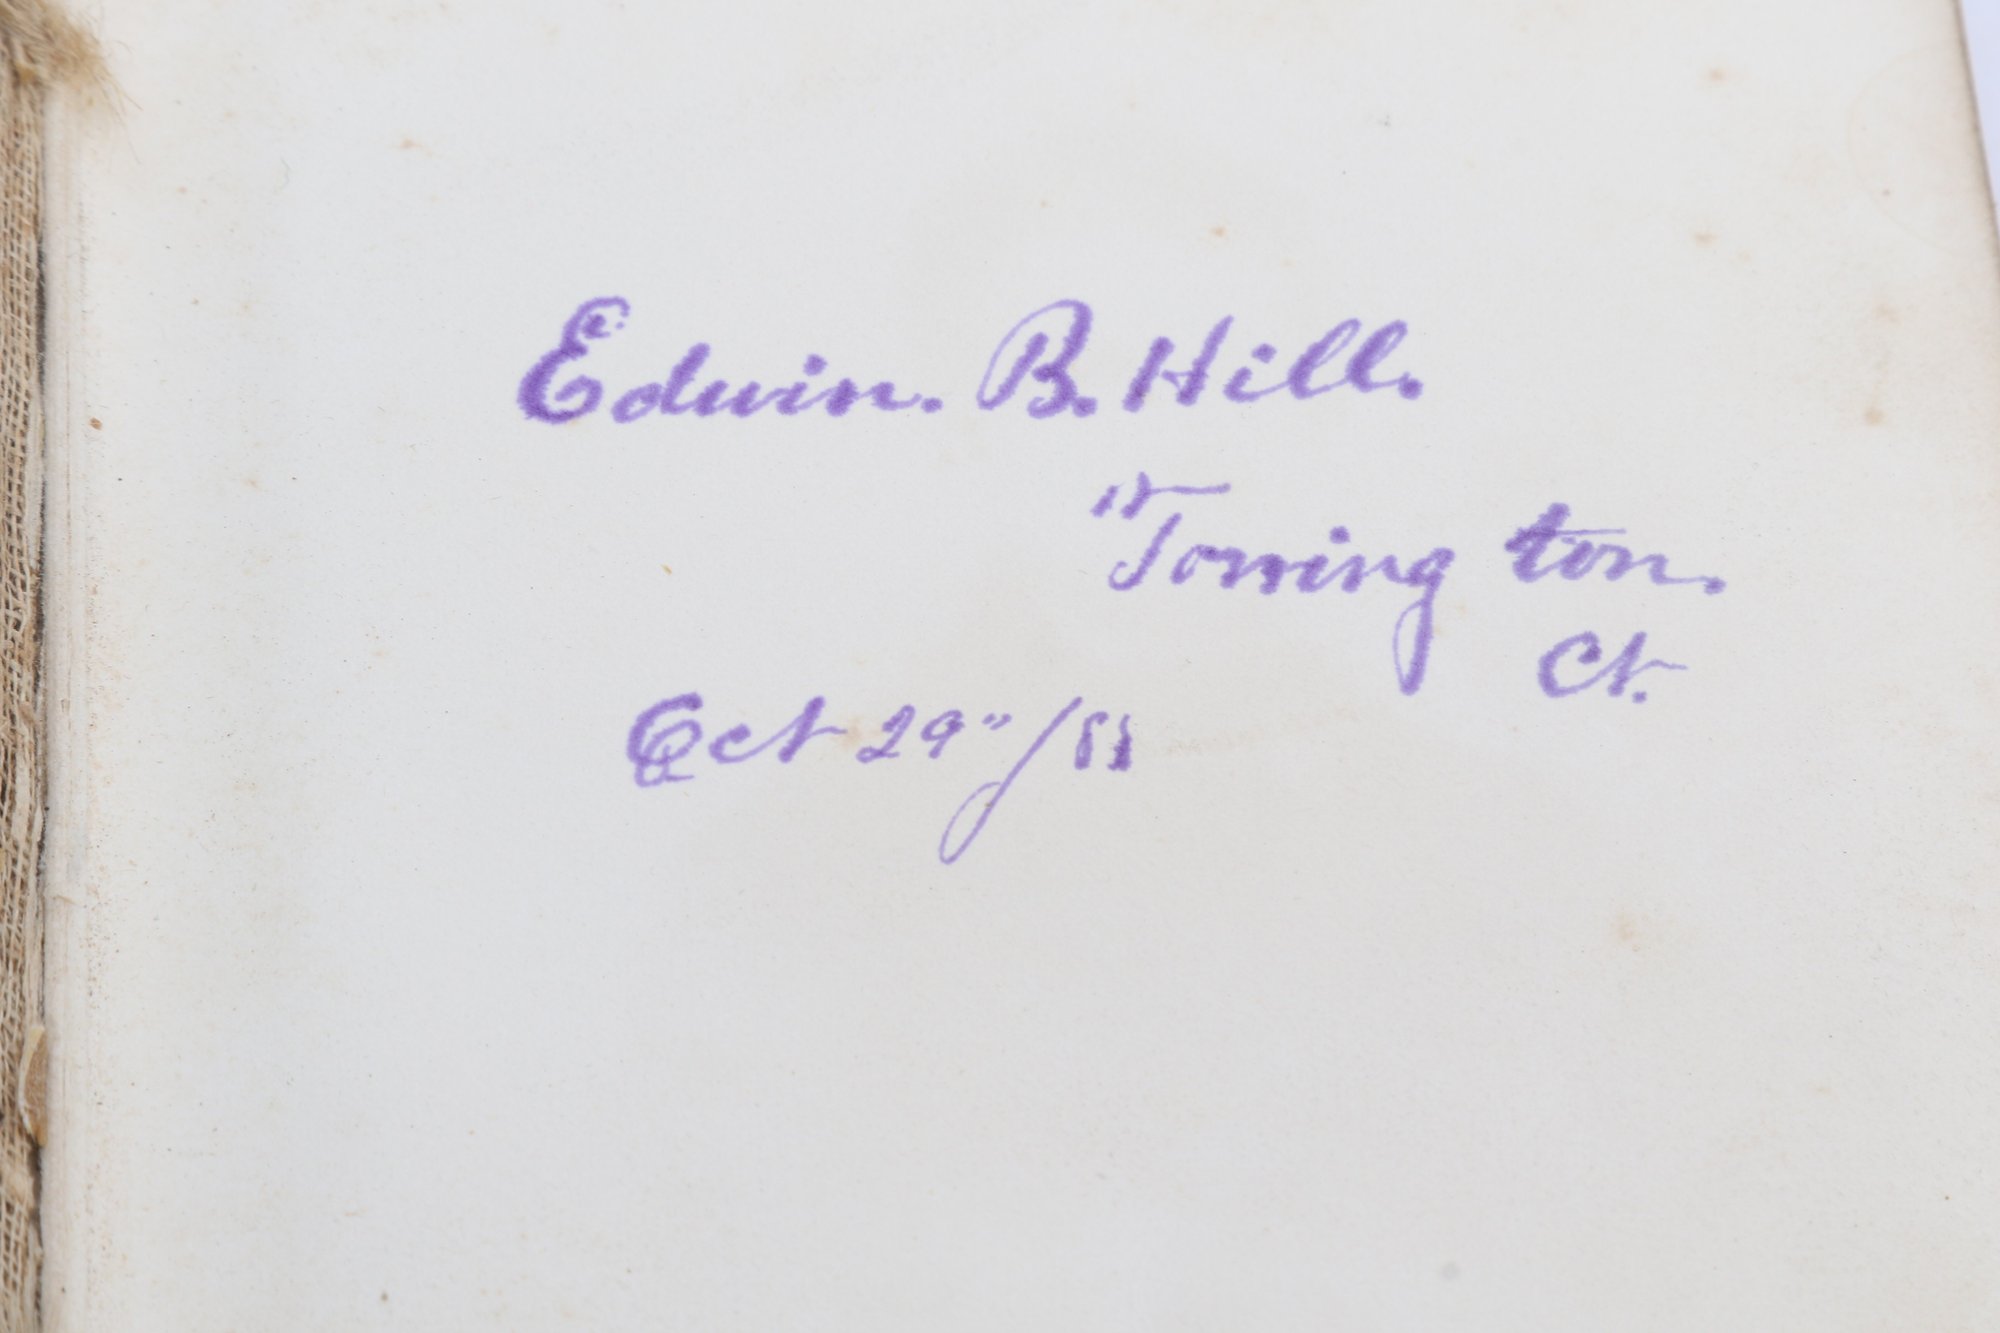 Edwin. B. Hill.
Torring ton.
Ct.
Oct 29"/88